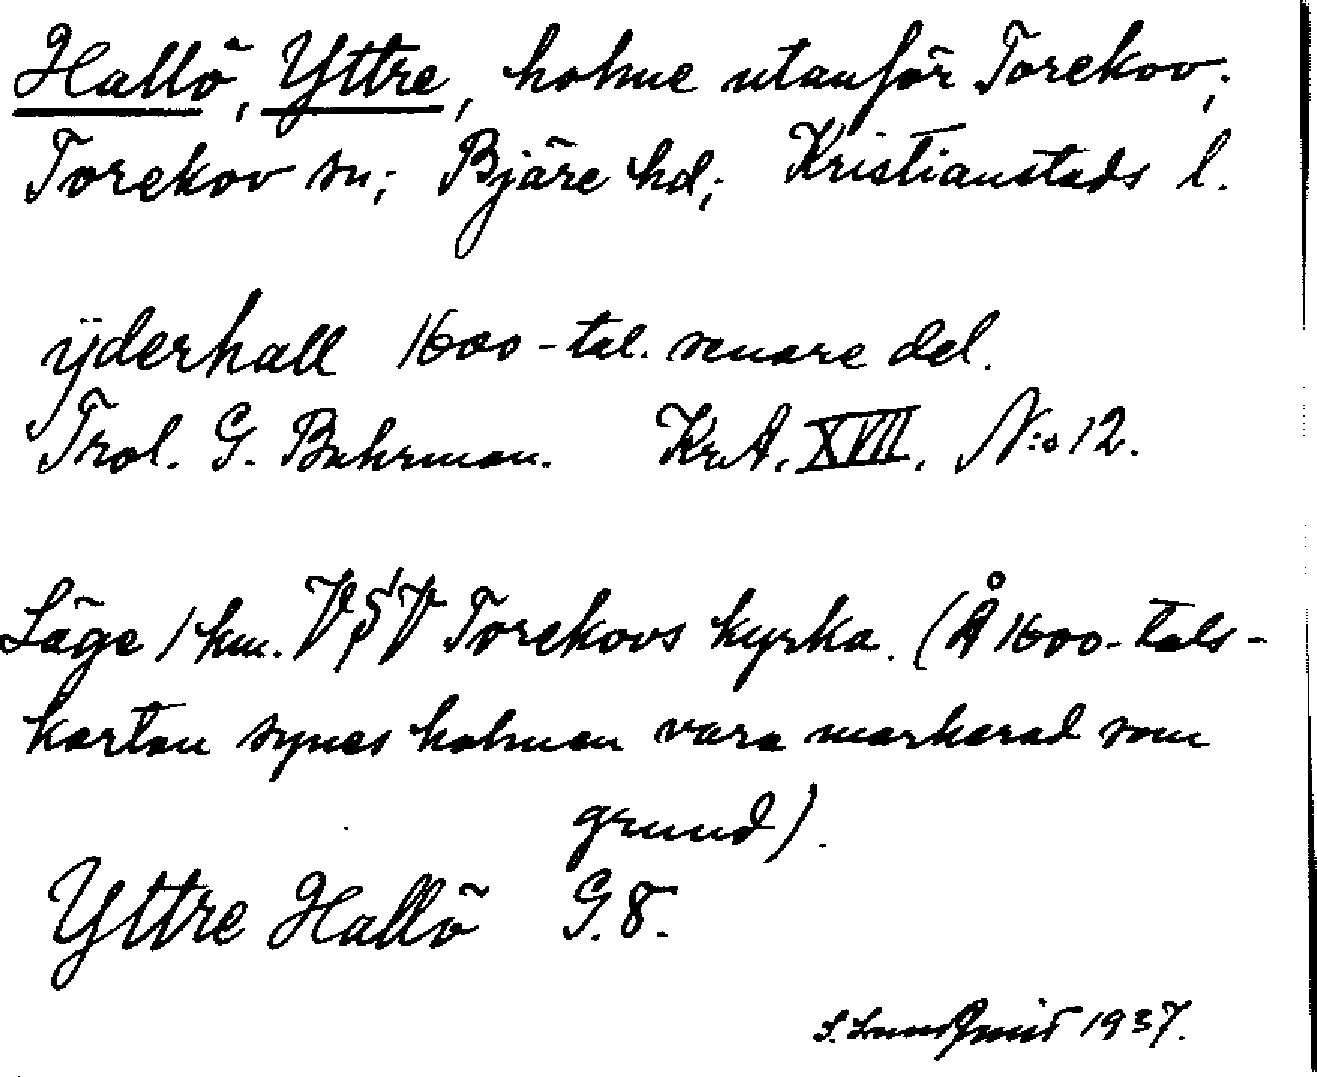 Hallö, Yttre, holme utanför Torekov;
Torekov sn; Bjäre hd; Kristianstads l.
ÿderhall 1600-tal. senare del.
Trol. G. Buhrman. KrA. XVII. N:o 12.
Läge 1 km. VSV Torekovs kyrka. (Å 1600-tals-
kartan synes holmen vara markerad som
grund).
Yttre Hallö G.8.
S. Lundqvist 1937.